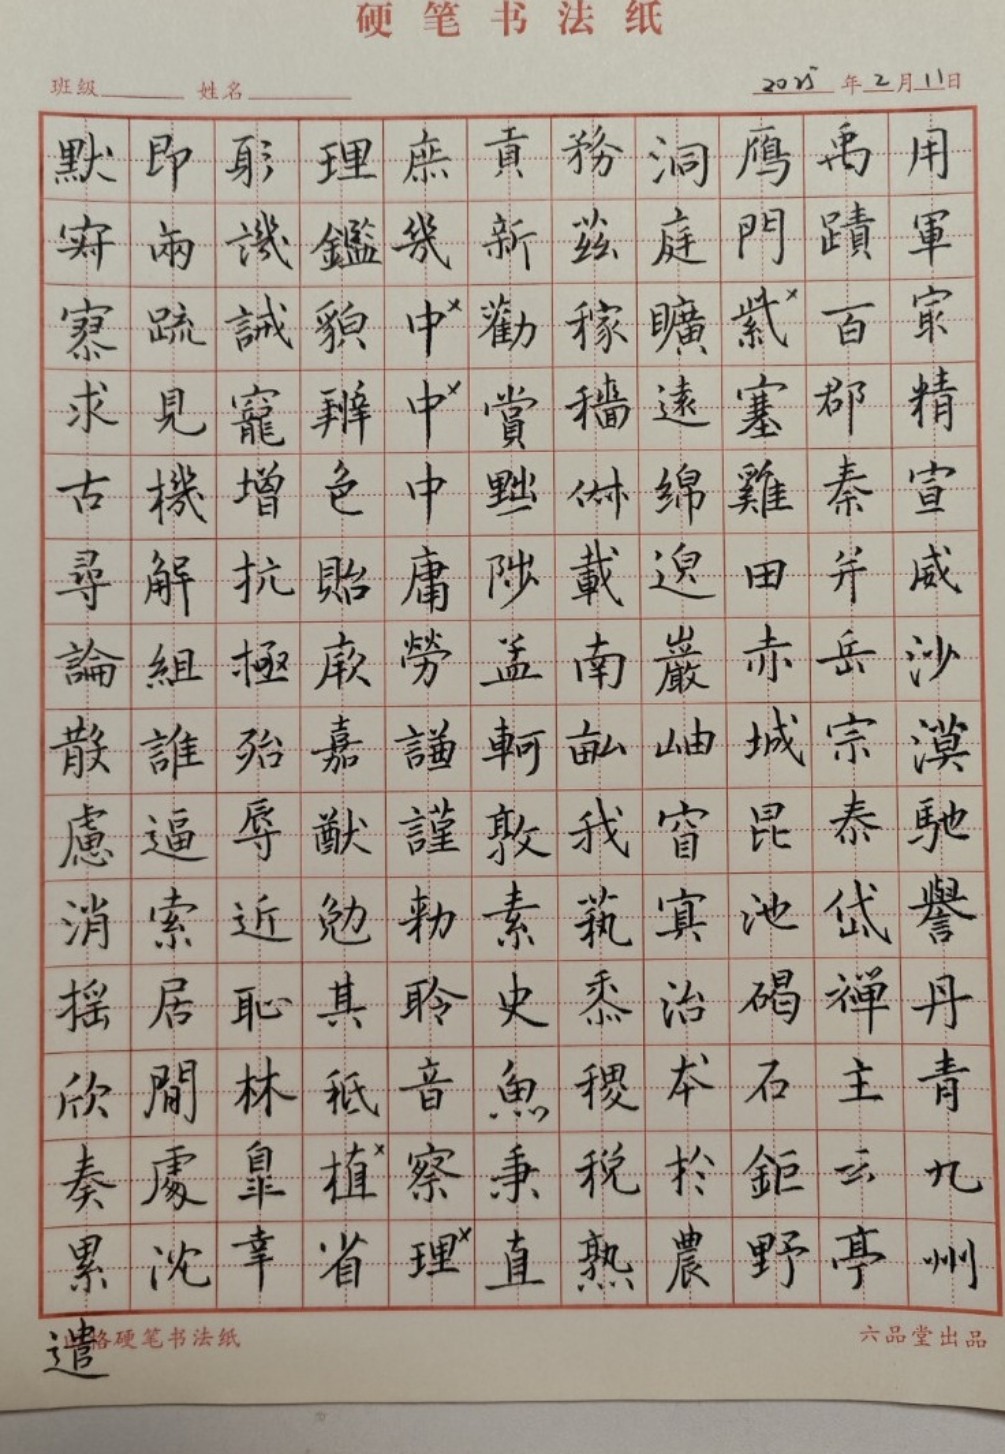 硬笔书法纸
班级 姓名 2025 年 2 月 11 日
用軍冣精宣威沙漠馳譽丹青九州
禹蹟百郡秦并岳宗泰岱禪主云亭
鴈門紫×塞雞田赤城昆池碣石鉅野
洞庭矌遠綿邈巖岫窅冥治本於農
務茲稼穡俶載南畝我蓺黍稷稅熟
貢新勸賞黜陟孟軻敦素史魚秉直
庶幾中×中×中庸勞謙謹勅聆音察理×
理鑑貌辨色貽厥嘉猷勉其祗植×省
躬譏誡寵增抗極殆辱近恥林皋幸
即兩疏見機解組誰逼索居閒處沈
默寂寥求古尋論散慮消搖欣奏累遣
格硬笔书法纸
六品堂出品